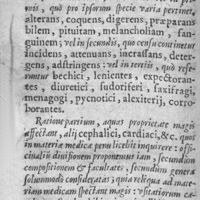 vis, quò pro ipsorum specie varia pertinet,
alterans, coquens, digerens, præparans
bilem, pituitam, melancholiam, san-
guinem; vel in secundis, quo censu continetur
incidens, attenuans, incrassans, deter-
gens, adstringens: vel in tertiis, quò refe-
runtur bechici, lenientes, expectoran-
tes, diuretici, sudoriferi, saxifragi,
menagogi, pycnotici, alexiterij, corro-
borantes.
Ratione partium, aquas proprietate magis
affectant, alij cephalici, cardiaci, &c. quos
in materia medicæ penu licebit inquirere: offi-
cinalium divisionem proponemus iam, secundùm
compositionem & facultates, secundùm genera
solummodo consideratas; quia reliqua ad mate-
riam medicam spectant magis: visitatiorum ca-